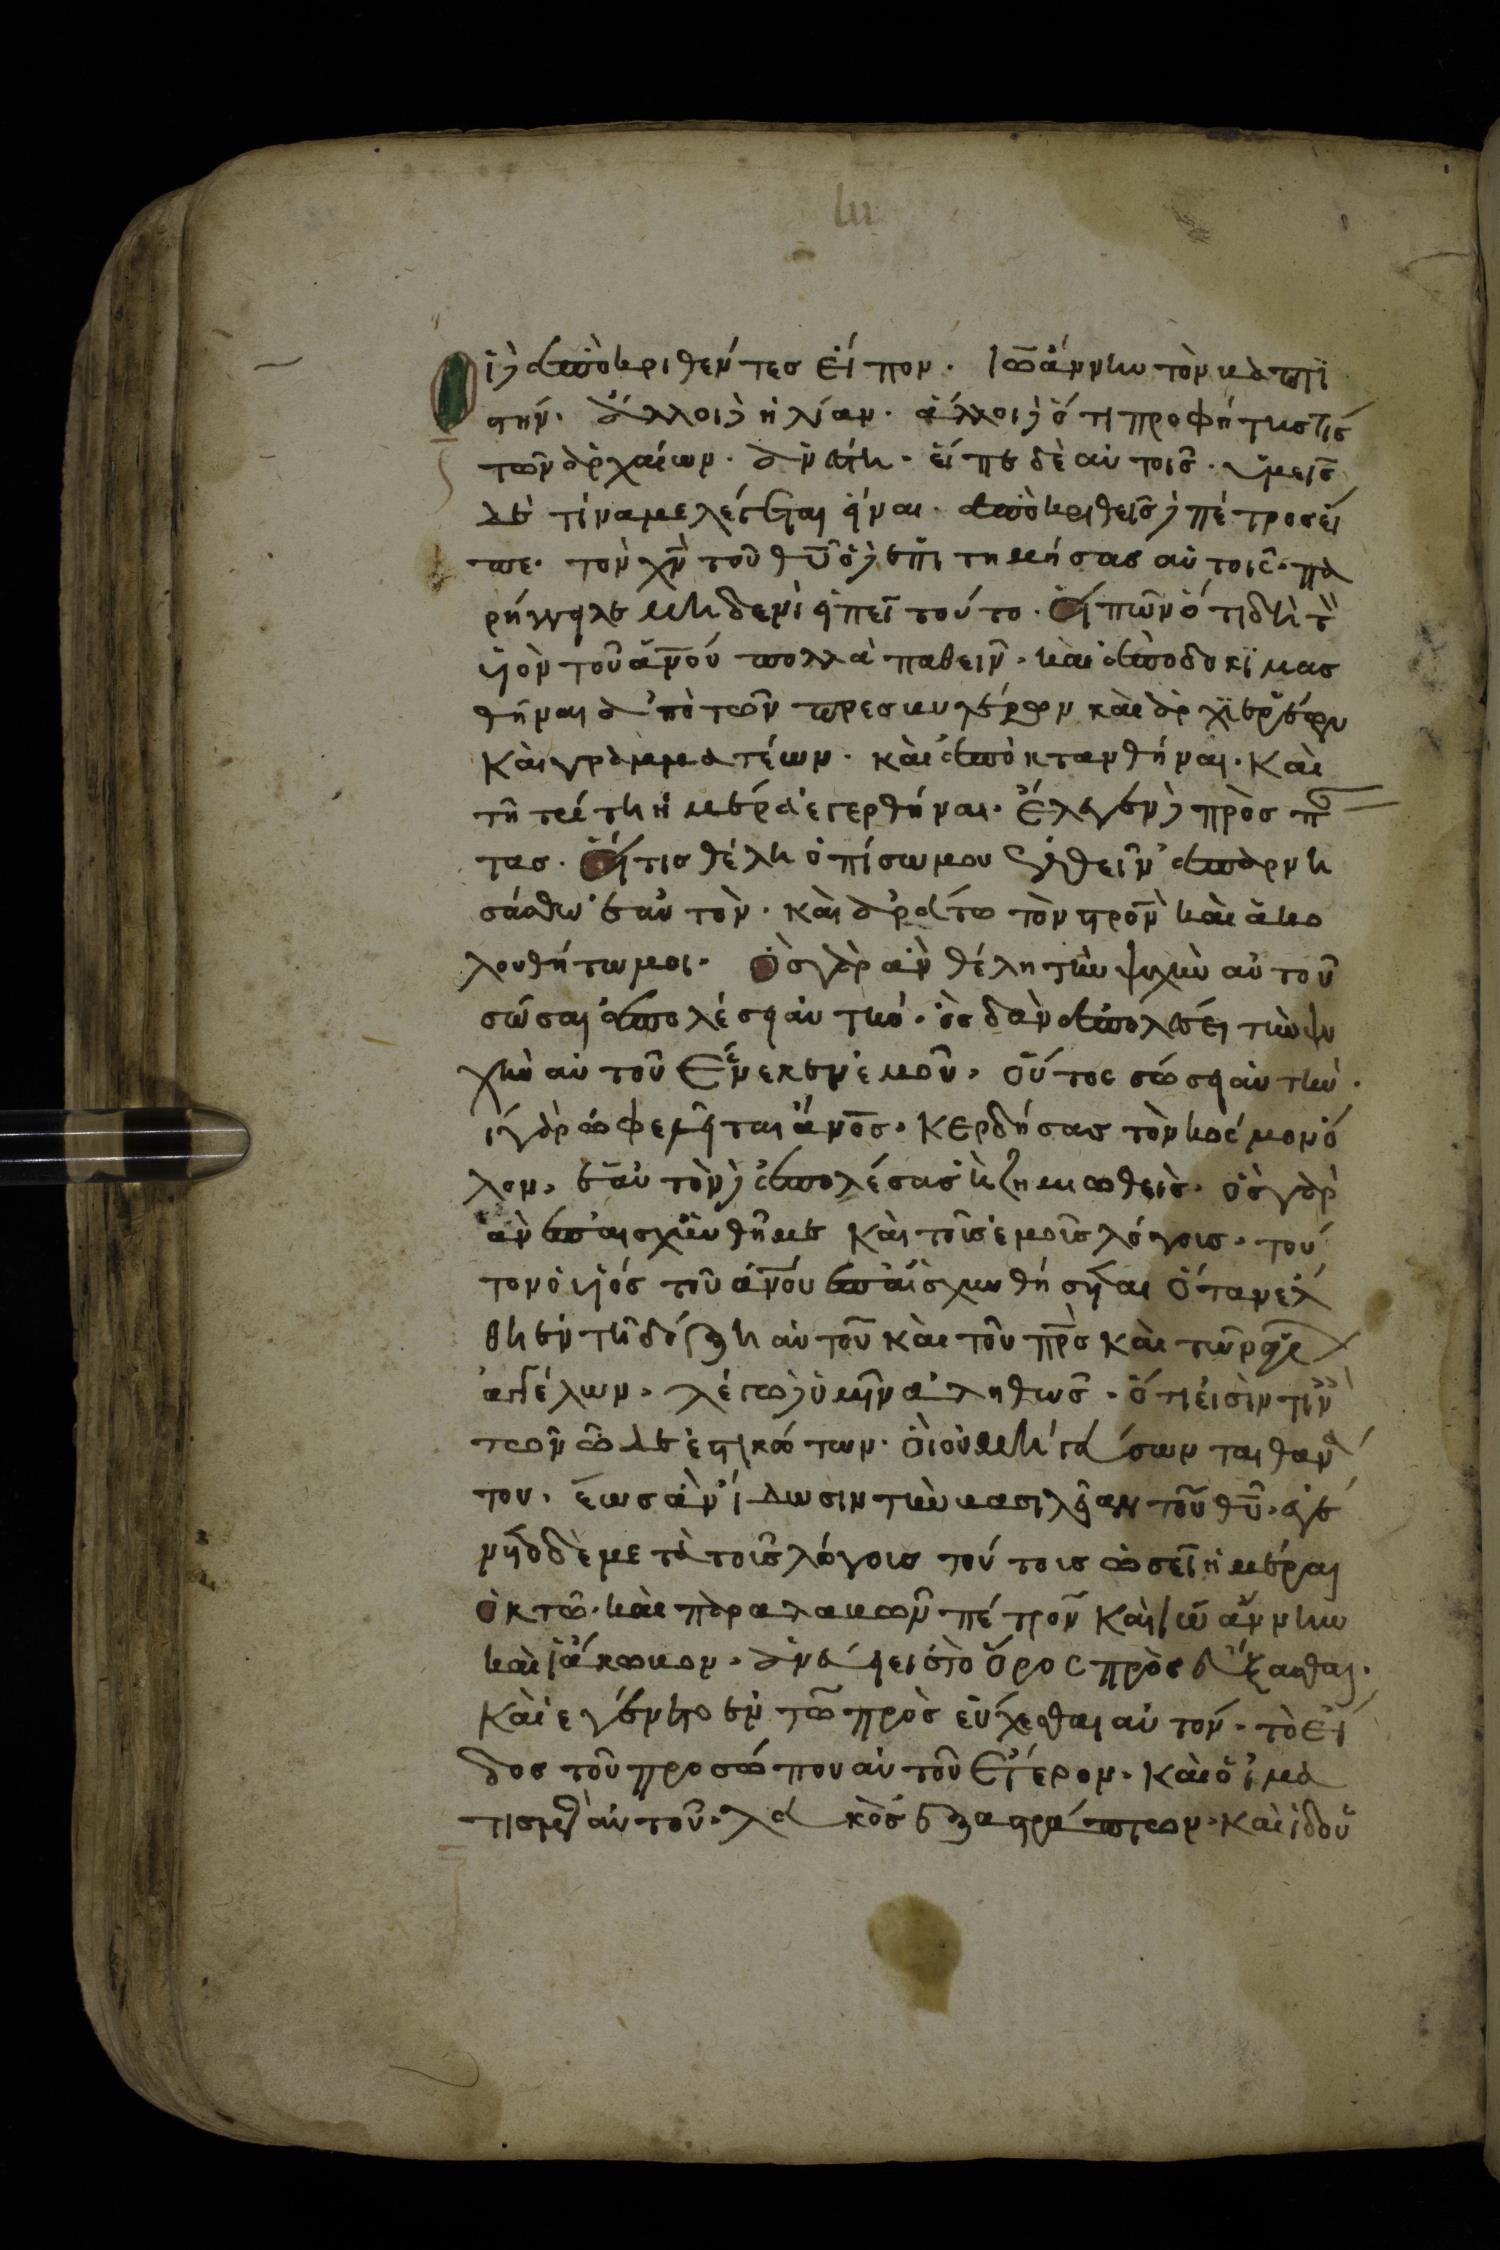 Οἱ δὲ ἀποκριθέντες εἶπον. Ἰωάννην τὸν βαπτι
στήν. ἄλλοι δὲ ἠλίαν. ἄλλοι δὲ ὅτι προφήτης τίς
τῶν ἀρχαίων ἀνέστη. εἶπε δὲ αὐτοῖς. ὑμεῖς
δὲ τίνα με λέγεται εἶναι. ἀποκριθεὶς δὲ πέτρος εἶ
πε. τὸν χν τοῦ θυ ὁ δὲ ἐπιτημήσας αὐτοῖς. πα
ρήγγειλε μηδενὶ εἰπεῖ τοῦτο. εἰπὼν ὅτι δεῖ τ
υἱὸν τοῦ ανου πολλὰ παθεῖν. καὶ ἀποδοκιμασ
θῆναι ἀπὸ τῶν πρεσβυτέρων καὶ ἀρχιερέων
καὶ γραμματέων. καὶ ἀποκτανθῆναι. καὶ
τῆ τρίτη ἡμέρα ἐγερθῆναι. ἔλεγεν δὲ πρὸς πᾶ
τας. εἴ τις θέλη ὀπίσω μου ἐλθεῖν ἀπαρνη
σάσθω ἑαυτὸν. καὶ ἀράτω τὸν σρον καὶ ἀκο
λουθήτω μοι. ὃς γὰρ ἂν θέλη τὴν ψυχὴν αὐτοῦ
σῶσαι ἀπολέσει αὐτήν. ὃς δ' ἂν ἀπολέσει τὴν ψυ
χὴν αὐτοῦ ἕνεκεν ἐμοῦ. οὗτος σώσει αὐτήν.
τί γὰρ ὠφελεῖται ανος. κερδήσας τὸν κόσμον ὅ
λον. ἑαυτὸν δὲ ἀπολέσας ἢ ζημιωθείς. ὃς γὰρ
ἂν ἐπαισχυνθῆ με καὶ τοῖς ἐμοῖς λόγοις. τοῦ
τον ὁ υἱός τοῦ ανου ἐπαισχυνθήσεται ὅταν ἔλ
θη ἐν τῆ δόξη αὐτοῦ καὶ τοῦ πρς καὶ τῶν ἁγί
ἀγγέλων. λέγω δὲ ὑμῖν ἀληθῶς. ὅτι εἰσὶν τιν
τῶν ὧδε ἑστηκότων. οἳ οὐ μὴ γεύσωνται θανά
του. ἕως ἂν ἴδωσιν τὴν βασιλείαν τοῦ θυ. ἐγέ
νετο δὲ μετὰ τοῖς λόγοις τούτοις ὡσεὶ ἡμέραι
ὀκτώ. καὶ παραλαβὼν πέτρον καὶ ἰωάννην
καὶ ἰάκωβον. ἀνέβη εἰς τὸ ὄρος προσεύξασθαι.
καὶ ἐγένετο ἐν τῶ προσεύχεσθαι αὐτόν. τὸ εἶ
δος τοῦ προσώπου αὐτοῦ ἕτερον. καὶ ὁ ἱμα
τισμὸς αὐτοῦ. λευκὸς ἐξαστράπτων. καὶ ἰδοὺ